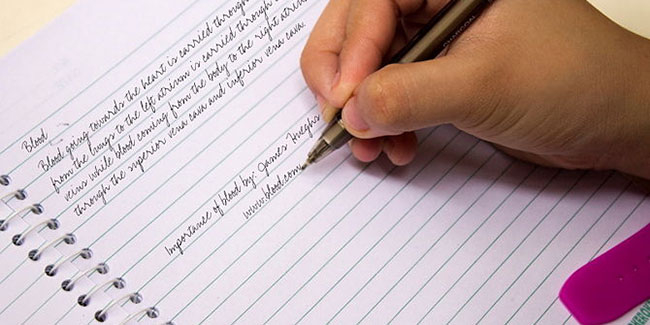 Blood
Blood going towards the heart is carried through
from the lungs to the left atrium is carried through
veins while blood coming from the body to the right atrium
through the superior vena cava and inferior vena cava.
Importance of blood by: James Hughs
www.blood.com